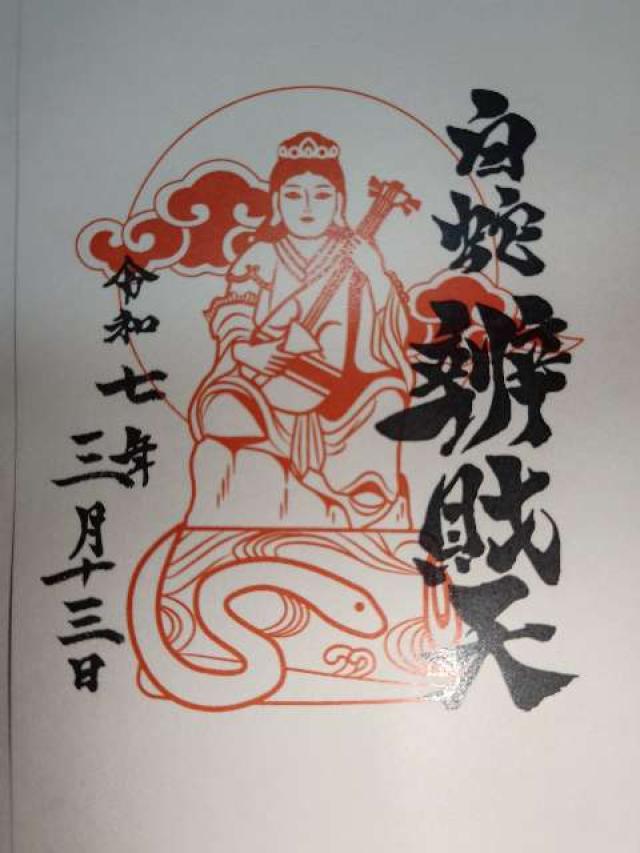 白蛇辨財天
令和七年
三月十三日